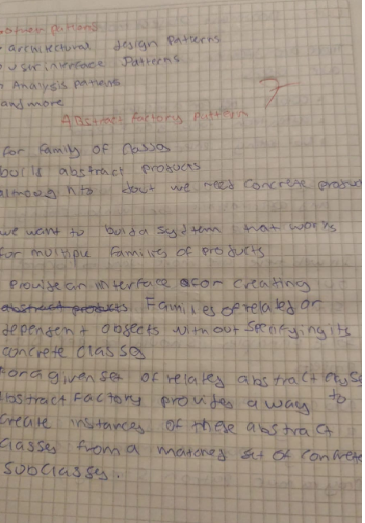 architectural design patterns
user interface patterns
Analysis patterns
and more
Abstract factory pattern
7
for family of classes
abstract products
dont we need concrete
we want to build a system that works
for multiple families of products
Provide an interface for creating
abstract products Families of related or
dependent objects without specifying its
concrete classes
for a given set of related abstract
abstract Factory provides a way to
create instances of these abstract
classes from a matched set of concrete
subclasses.